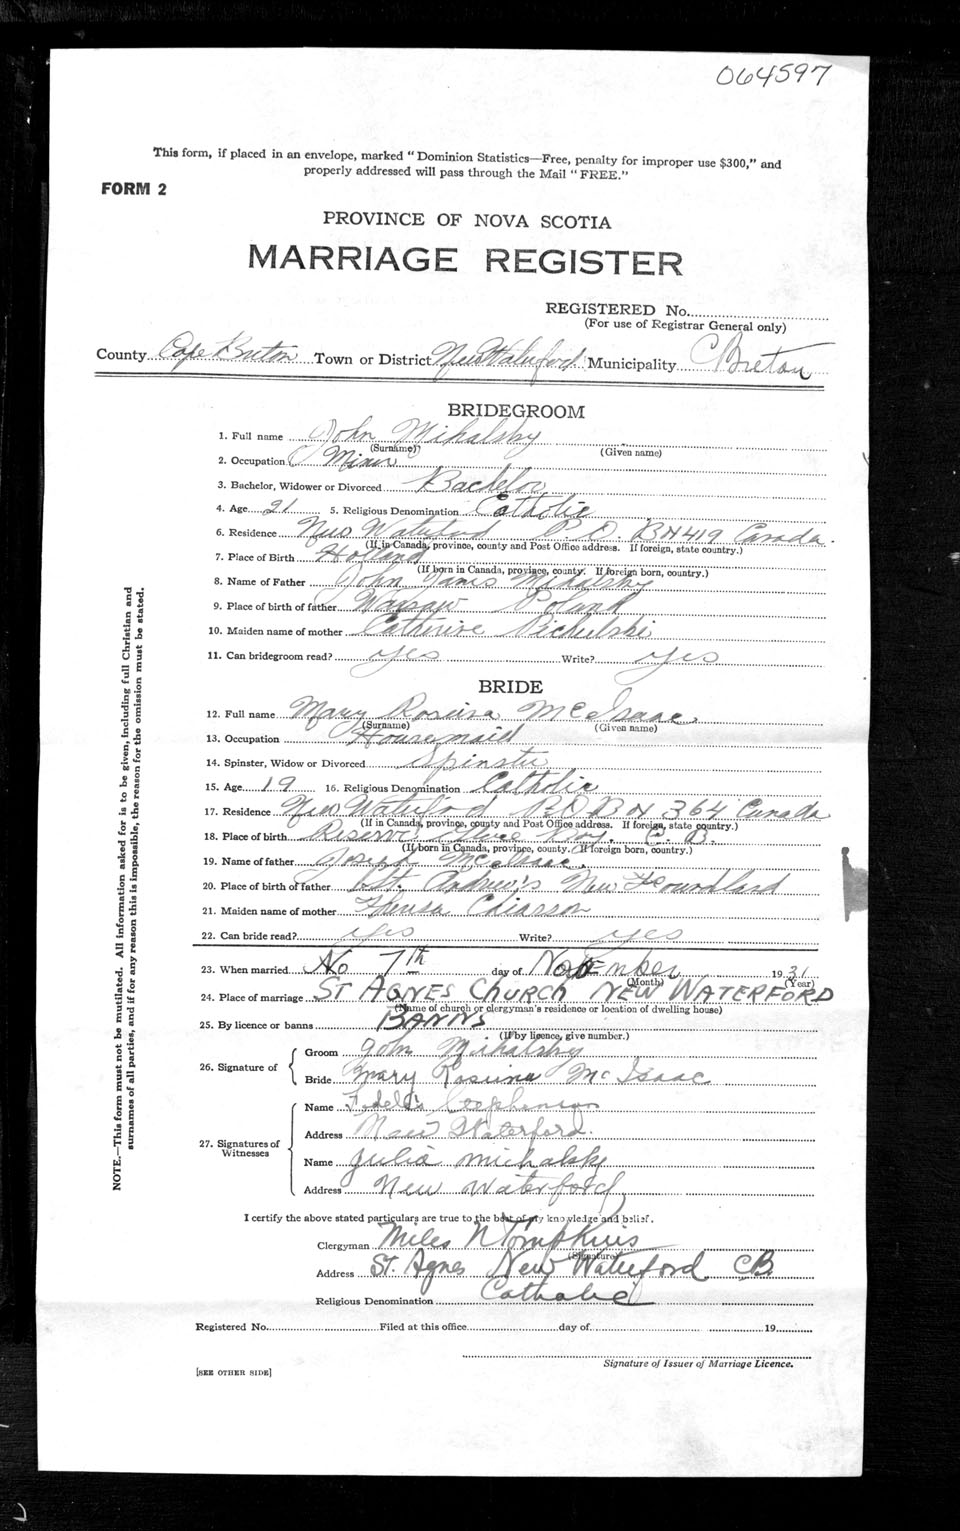 064597
This form, if placed in an envelope, marked "Dominion Statistics—Free, penalty for improper use $300," and
properly addressed will pass through the Mail "FREE."
FORM 2
PROVINCE OF NOVA SCOTIA
MARRIAGE REGISTER
REGISTERED No.
(For use of Registrar General only)
County Cape Breton Town or District New Waterford Municipality C Breton
BRIDEGROOM
1. Full name John Mihalsky
(Surname) (Given name)
2. Occupation Miner
3. Bachelor, Widower or Divorced Bachelor
4. Age 21 5. Religious Denomination Catholic
6. Residence New Waterford P.O. BX 419 Canada.
(If in Canada, province, county and Post Office address. If foreign, state country.)
7. Place of Birth Holland
(If born in Canada, province, county. If foreign born, country.)
8. Name of Father John James Mihalsky
9. Place of birth of father Warsaw Poland
10. Maiden name of mother Catherine
11. Can bridegroom read? yes Write? yes
BRIDE
12. Full name Mary Rosina McIsaac.
(Surname) (Given name)
13. Occupation Housemaid
14. Spinster, Widow or Divorced Spinster
15. Age 19 16. Religious Denomination Catholic
17. Residence New Waterford P.O. BX 364 Canada
(If in Canada, province, county and Post Office address. If foreign, state country.)
18. Place of birth Reserve Glace Bay. C.B.
(If born in Canada, province, county. If foreign born, country.)
19. Name of father Joseph McIsaac.
20. Place of birth of father St. Andrew's New Foundland
21. Maiden name of mother Chiasson
22. Can bride read? yes Write? yes
23. When married No 7th day of November 1931
(Month) (Year)
24. Place of marriage ST AGNES CHURCH NEW WATERFORD
(Name of church or clergyman's residence or location of dwelling house)
25. By licence or banns BANNS
(If by licence, give number.)
26. Signature of
Groom John Mihalsky
Bride Mary Rosina McIsaac
27. Signatures of
Witnesses
Name Stephenson
Address New Waterford.
Name Julia Michalsky
Address New Waterford
I certify the above stated particulars are true to the best of my knowledge and belief.
Clergyman Miles N Tompkins
(Signature)
Address St. Agnes New Waterford CB
Religious Denomination Catholic
Registered No. Filed at this office day of 19
Signature of Issuer of Marriage Licence.
[SEE OTHER SIDE]
NOTE.—This form must not be mutilated. All information asked for is to be given, including full Christian and
surnames of all parties, and if for any reason this is impossible, the reason for the omission must be stated.